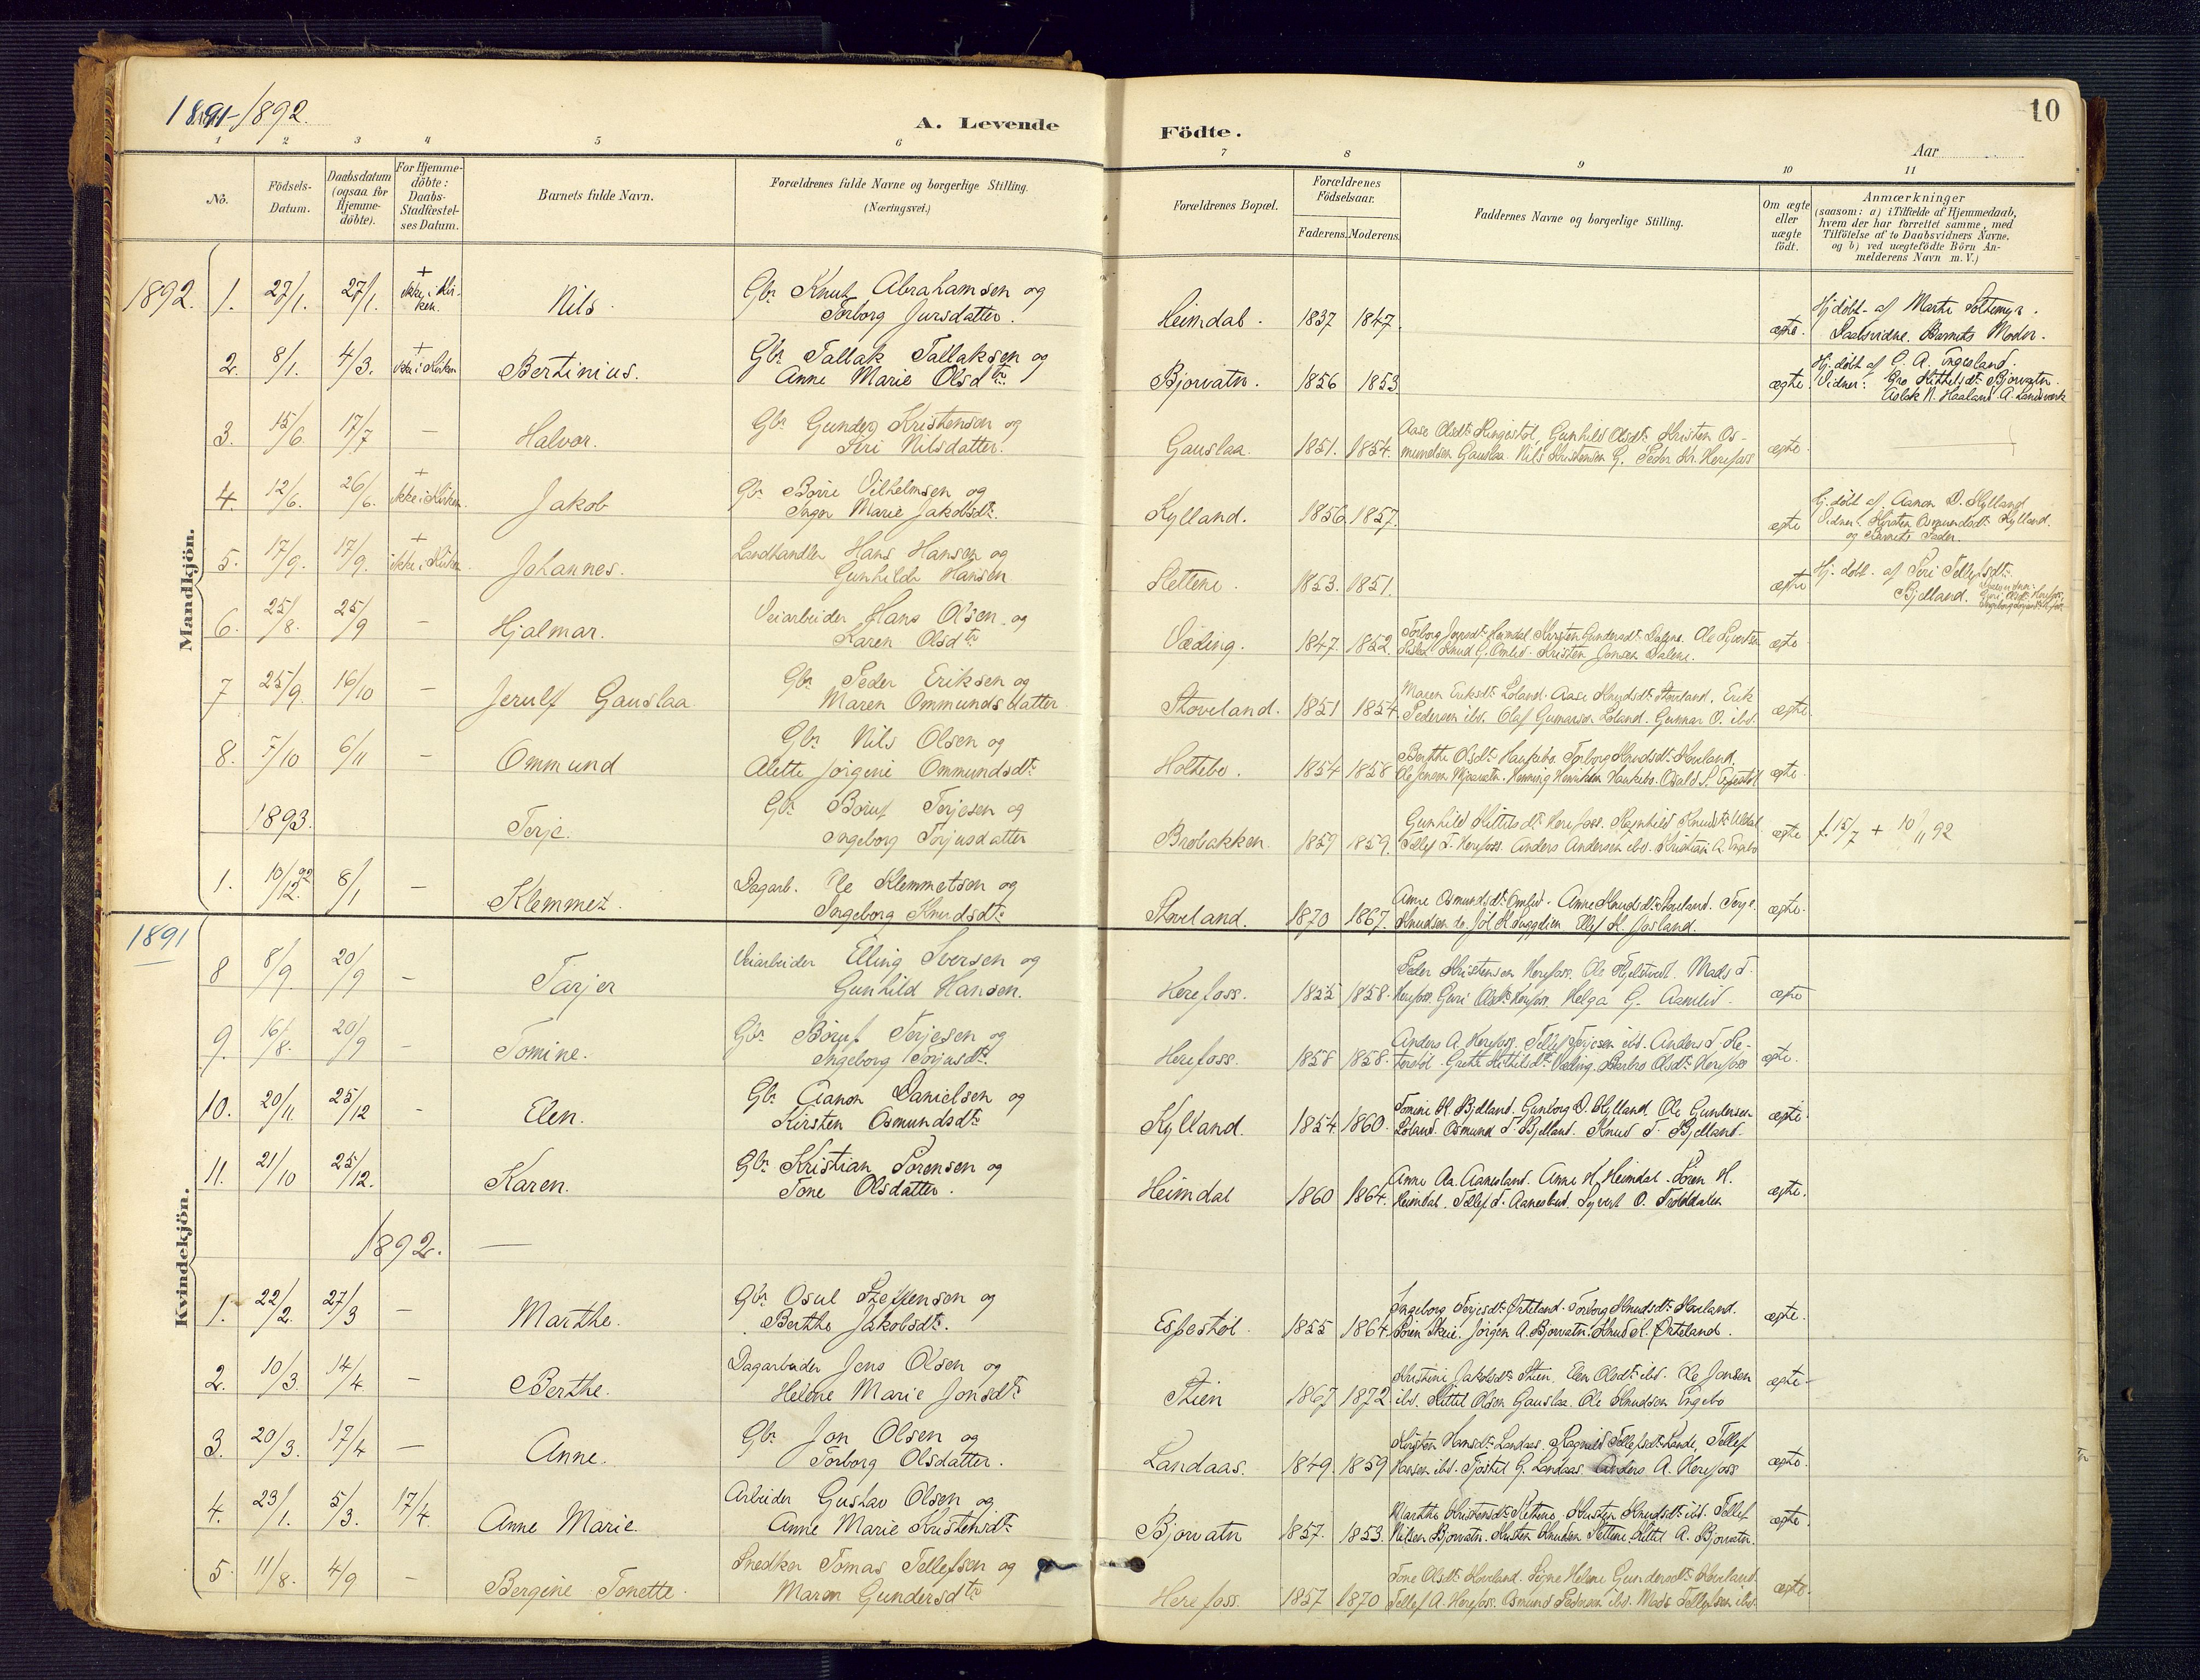 1891-1892.
A. Levende Födte.
10
Aar
1 2 3 4 5 6 7 8 9 10 11
No.
Födsels-Datum.
Daabsdatum (ogsaa for Hjemme-döbte).
For Hjemme-döbte: Daabs-Stadfæstel-ses Datum.
Barnets fulde Navn.
Forældrenes fulde Navne og borgerlige Stilling. (Næringsvei.)
Forældrenes Bopæl.
Forældrenes Födselsaar.
Faderens. Moderens.
Faddernes Navne og borgerlige Stilling.
Om ægte eller uægte födt.
Anmærkninger (saasom: a) i Tilfælde af Hjemmedaab, hvem der har forrettet samme, med Tilföielse af to Daabsvidners Navne, og b) ved uægtefödte Börn An-melderens Navn m. V.)
Mandkjön.
1892. 1. 27/1. 27/1. + ikke i Kir-ken. Nils Gbr. Knut Abrahamsen og
Torborg Jursdatter. Heimdal. 1837 1847. ægte. Hj. döbt af Marte Soltemyr.
Daabsvidne. Barnets Moder.
2. 8/1. 4/3. + ikke i Kirken Bertinius. Gbr. Tallak Tallaksen og
Anne Marie Olsdtr. Bjorvatn. 1856 1853 ægte Hj. döbt af C. A. Engesland.
Vidner: Gro Kittelsdt. Bjorvatn.
Aslak N. Haaland A. Landsverk
3. 15/6. 17/7 — Halvor. Gbr. Gunder Kristensen og
Siri Nilsdatter. Gauslaa. 1851. 1854. Aase Olsdt. Ringestöl, Gunhild Olsdt. Kristen Os-
mundsen Gauslaa. Nils Kristensen G. Peder Kr. Herefoss ægte.
4. 12/6. 26/6. + ikke i Kirken Jakob Gbr. Börre Vilhelmsen og
Inger Marie Jakobsdt. Kylland. 1856 1857. ægte Hj. döbt af Aanon D. Kylland
Vidner: Kirsten Osmundsdt. Kylland.
og Barnets Fader.
5. 17/9. 17/9. + ikke i Kirken Johannes. Landhandler Hans Hansen og
Gunhilde Hansen Slettene. 1853. 1851. ægte Hj. döbt. af Siri Tellefsdt.
Bjelland.
6. 25/8. 25/9 — Hjalmar. Veiarbeider Hans Olsen og
Karen Olsdtr. Væding. 1847. 1852. Torborg Jorsdt. Heimdal. Kirsten Gundersdt. Dalene. Ole Syvertsen
Knud G. Omlid. Kristen Jensen Dalene. ægte
7 25/9. 16/10 — Jerulf Gauslaa Gbr. Peder Eriksen og
Maren Ommundsdatter Stoveland. 1851 1854 Maren Eriksdt. Loland. Aase Knudsdt. Stoveland. Erik
Pedersen ibd. Olaf Gunnarsen Loland. Gunnar O. ibd. ægte.
8. 5/10 6/11 — Ommund Gbr. Nils Olsen og
Alette Jörgine Ommundsdt. Holtebo. 1854 1858 Berthe Olsdt. Haukebo. Torborg Knudsdt. Haviland
Ole Jensen Henning Henriksen Haukebo. Osuld S. Espestöl ægte.
1893. Terje. Gbr. Börut Terjesen og
Ingeborg Torjusdatter Brobakken. 1859 1859. Gunhild Kittilsdt. Herefoss. Ragnhild Knudsdt. Uldal
Tellef T. Herefoss. Anders Andersen ibd. Kristian A. Engebo ægte f. 15/7 + 10/11 92
1. 10/12. 92 8/1 — Klemmet. Dagarb. Ole Klemmetsen og
Ingeborg Knudsdt. Stoveland. 1870 1867. Anne Osmundsdt. Omlid. Anne Knudsdt. Stoveland. Terje
Knudsen do. Jöl K. Ellef K. Josland. ægte.
Kvindekjön.
1891 8 8/9. 20/9 — Tarjer Veiarbeider Elling Iversen og
Gunhild Hansen. Herefoss. 1855 1858. Peder Kristensen Herefoss. Ole Fjelstved. Mads T.
Herefoss. Guri Olsdt. Herefoss Helga G. Aamlid. ægte
9. 16/8. 20/9 — Tomine. Gbr. Börut Terjesen og
Ingeborg Torjusdt. Herefoss. 1858 1858. Anders A. Herefoss. Tellef Terjesen ibd. Anders T. Re-
terstöl. Grethe Kittilsdt. Væding. Barbro Olsdt. Herefoss ægte.
10. 20/11 25/12 - Elen. Gbr. Aanon Danielsen og
Kirsten Osmundsdt. Kylland. 1854 1860. Tomine K. Bjelland. Gunborg D. Kylland. Ole Gundersen
Loland. Osmund T. Bjelland. Knud T. Bjelland. ægte
11. 21/10 25/12. Karen. Gbr. Kristian Sörensen og
Tone Olsdatter. Heimdal 1860 1864. Anne Aa. Aanesland. Anne K. Heimdal. Sören K.
Heimdal. Tellef T. Aanesland. Syvert O. Trolddalen ægte.
1892. —
1. 22/2. 27/3 — Marthe. Gbr. Osul Steffensen og
Berthe Jakobsdt. Espestöl. 1855 1864 Ingeborg Terjesdt. Örteland. Torborg Knudsdt. Haviland.
Sören Skeie. Jörgen A. Bjorvatn. Knud K. Örteland. ægte.
2. 10/3. 14/4 — Berthe. Dagarbeider Jens Olsen og
Helene Marie Jonsdt. Stien 1867 1872. Kristine Jakobsdt. Stien. Elen Olsdt. ibd. Ole Jonsen
ibd. Kittel Olsen Gauslaa. Ole Knudsen Engebo ægte.
3. 20/3. 17/4 — Anne. Gbr. Jon Olsen og
Torborg Olsdatter. Landaas. 1849. 1859 Kirsten Hansdt. Landaas. Ragnild Tellefsdt. Lande, Tellef
Hansen ibd. Tjöstel G. Landaas. Anders A. Herefoss ægte.
4. 23/1. 5/3. 17/4. Anne Marie. Arbeider Gustav Olsen og
Anne Marie Kristensdt. Bjorvatn 1857. 1853. Marthe Kristensdt. Slettene. Kirsten Knudsdt. ibd. Tellef
Nilsen Bjorvatn. Kristen Knudsen Slettene. Kittel A. Bjorvatn. ægte.
5. 11/8. 4/9 — Bergine Tonette. Snedker Tomas Tellefsen og
Maren Gundersdtr Herefoss. 1857 1870 Tone Olsdt. Haviland. Signe Helene Gundersdt. Haviland.
Tellef A. Herefoss. Osmund Pedersen ibd. Mads Tellefsen ibd. ægte.